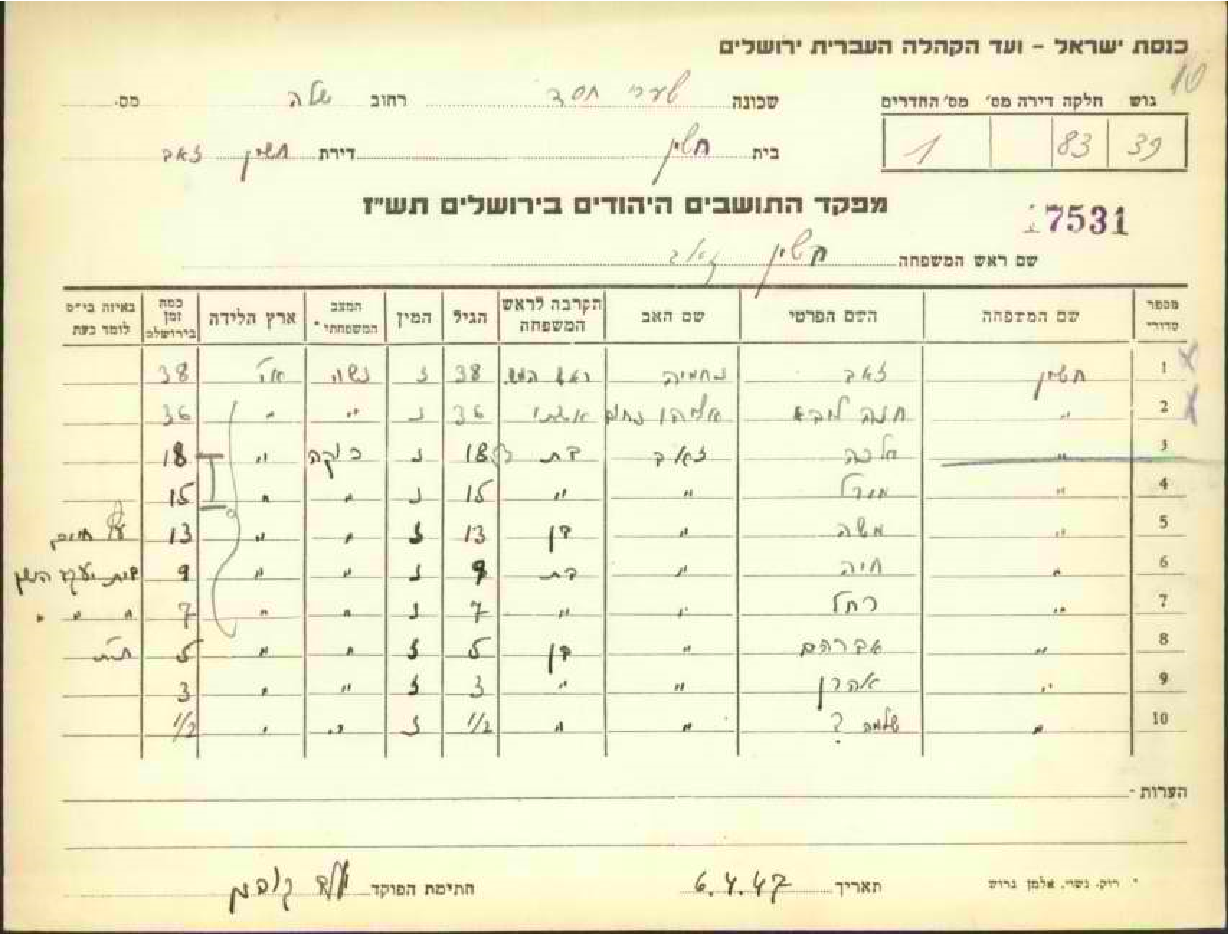 כנסת ישראל - ועד הקהלה העברית ירושלים
10
גוש חלקה דירה מס' מס' החדרים
39 83 1
שכונה שערי חסד רחוב שלה מס.
בית חשין דירת חשין זאב
מפקד התושבים היהודים בירושלים תש"ז
17531
שם ראש המשפחה חשין זאב
מספר סדורי שם המשפחה השם הפרטי שם האב הקרבה לראש המשפחה הגיל המין המצב המשפחתי* ארץ הלידה כמה זמן בירושלים באיזה בי"ס לומד כעת
1 חשין זאב נחמיה ראש המש. 38 ז נשוי א"י 38
2 " חנה ליבא אליהו נחום אשתו 36 נ " " 36
3 " מלכה זאב בת 18 נ רוקה " 18
4 " " " 15 נ " " 15
5 " משה " בן 13 ז " " 13 עץ חיים
6 " חיה " בת 9 נ " " 9 בית יעקב הישן
7 " רחל " " 7 נ " " 7 " " "
8 " אברהם " בן 5 ז " " 5 ת"ת
9 " אהרן " " 3 ז " " 3
10 " שלמה ? " " 1/2 ז " " 1/2
הערות -
* רוק, נשוי, אלמן גרוש
תאריך 6.4.47 חתימת הפוקד